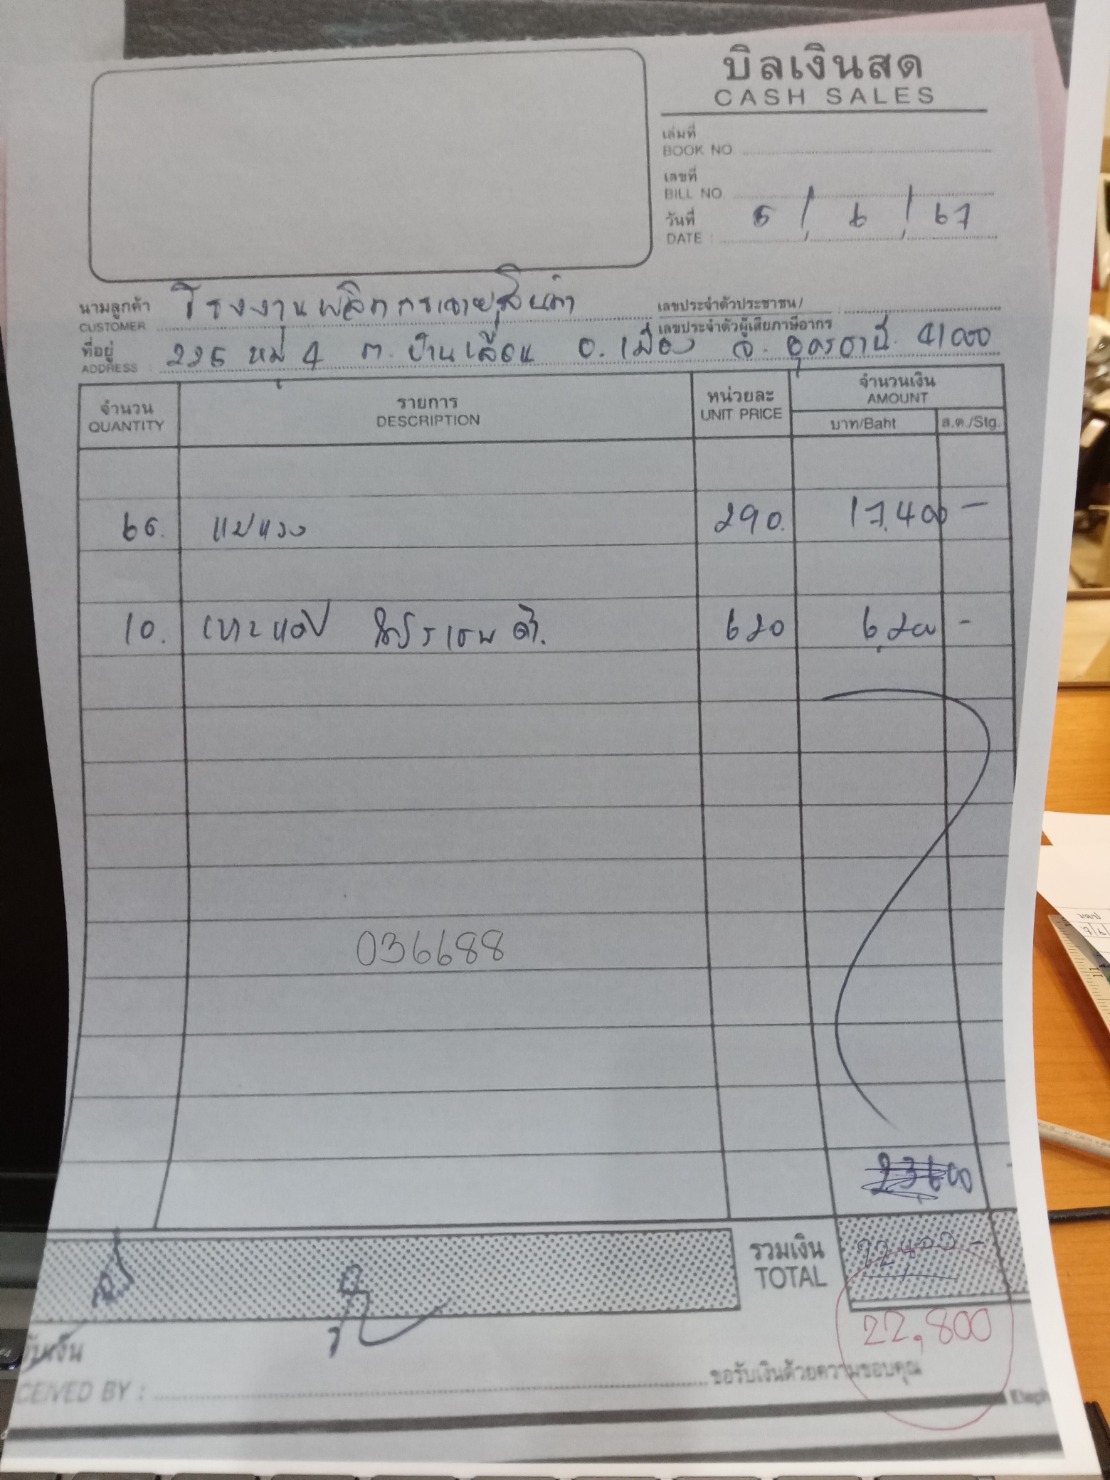 บิลเงินสด
CASH SALES
เล่มที่
BOOK NO.
เลขที่
BILL NO.
วันที่ 5 / 6 / 67
DATE :
นามลูกค้า โรงงานผลิตกระเป๋า
CUSTOMER
เลขประจำตัวประชาชน/
เลขประจำตัวผู้เสียภาษีอากร
ที่อยู่ 225 หมู่ 4 ต. บ้านเลื่อม อ. เมือง จ. อุดรธานี 41000
ADDRESS :
จำนวน รายการ หน่วยละ จำนวนเงิน
QUANTITY DESCRIPTION UNIT PRICE AMOUNT
บาท/Baht ส.ต./Stg.
60. 290. 17,400 -
10. 620 6,200 -
036688
23600
รวมเงิน 22400 -
TOTAL
22,800
รับเงิน
CEIVED BY :
ขอรับเงินด้วยความขอบคุณ
Eleph